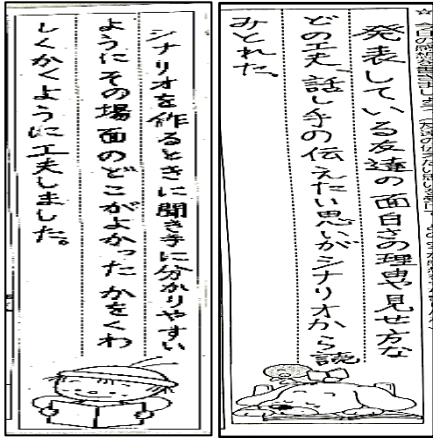 発表している友達の面白さの理由や見せ方な
どの工夫、話し手の伝えたい思いがシナリオから読
みとれた。
シナリオを作るときに聞き手に分かりやすい
ようにその場面のどこがよかったかをくわ
しくかくように工夫しました。